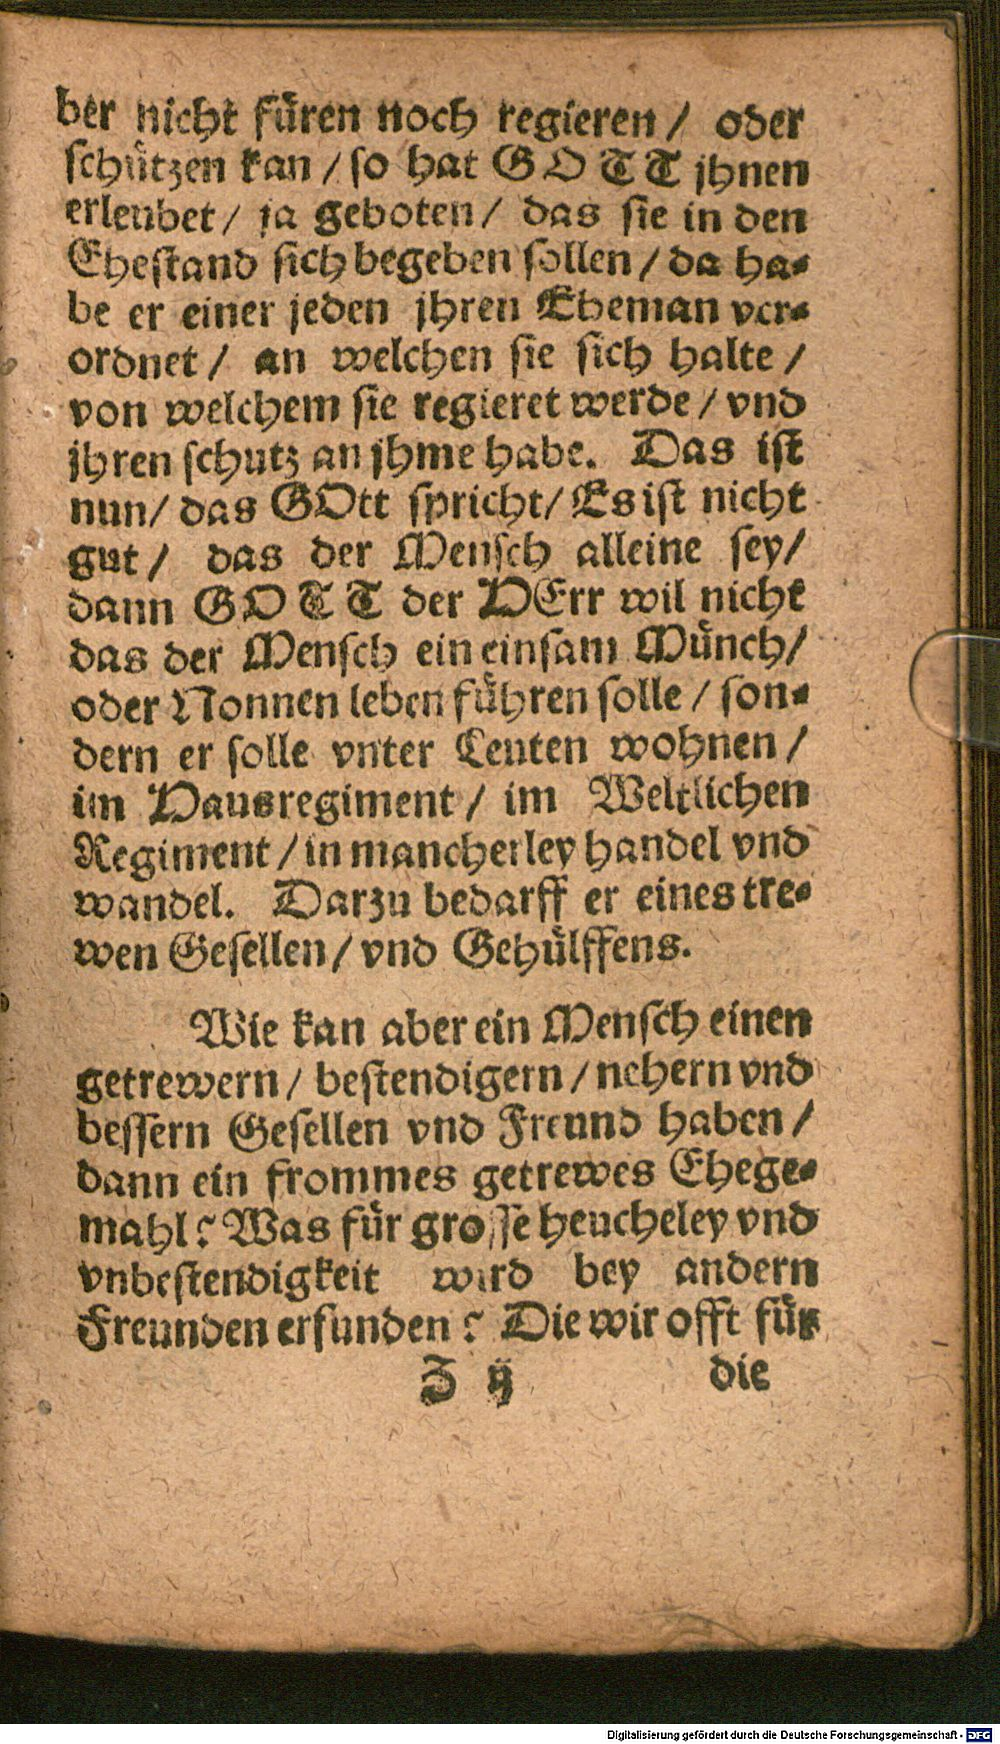 ber nicht füren noch regieren / oder
schützen kan / so hat GOTT jhnen
erleubet / ja geboten / das sie in den
Ehestand sich begeben sollen / da ha-
be er einer jeden jhren Eheman ver-
ordnet / an welchen sie sich halte /
von welchem sie regieret werde / vnd
jhren schutz an jhme habe. Das ist
nun / das GOtt spricht / Es ist nicht
gut / das der Mensch alleine sey /
dann GOTT der HErr wil nicht
das der Mensch ein einsam Münch /
oder Nonnen leben führen solle / son-
dern er solle vnter Leuten wohnen /
im Hausregiment / im Weltlichen
Regiment / in mancherley handel vnd
wandel. Darzu bedarff er eines tre-
wen Gesellen / vnd Gehülffens.
Wie kan aber ein Mensch einen
getrewern / bestendigern / nehern vnd
bessern Gesellen vnd Freund haben /
dann ein frommes getrewes Ehege-
mahl? Was für grosse heucheley vnd
vnbestendigkeit wird bey andern
Freunden erfunden? Die wir offt für
Z ij die
Digitalisierung gefördert durch die Deutsche Forschungsgemeinschaft - DFG